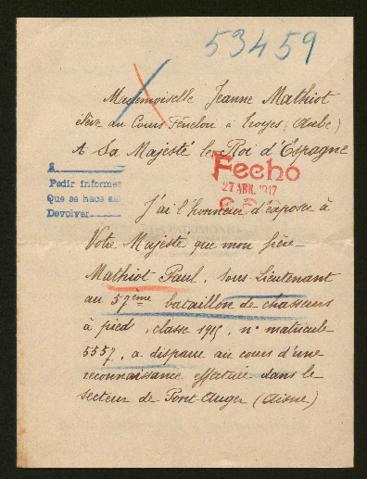 53459
Mademoiselle Jeanne Mathiot
élève au Cours Fénelon à Troyes (Aube)
A Sa Majesté le Roi d'Espagne
Fecho
27 ABR. 1917
A
Pedir informes
Que se haga
Devolver
J'ai l'honneur d'exposer à
Votre Majesté que mon frère
Mathiot Paul, sous-lieutenant
au 57ème bataillon de chasseurs
à pied, classe 1915, n° matricule
5557, a disparu au cours d'une
reconnaissance effectuée dans le
secteur de Pont-Auger (Aisne)